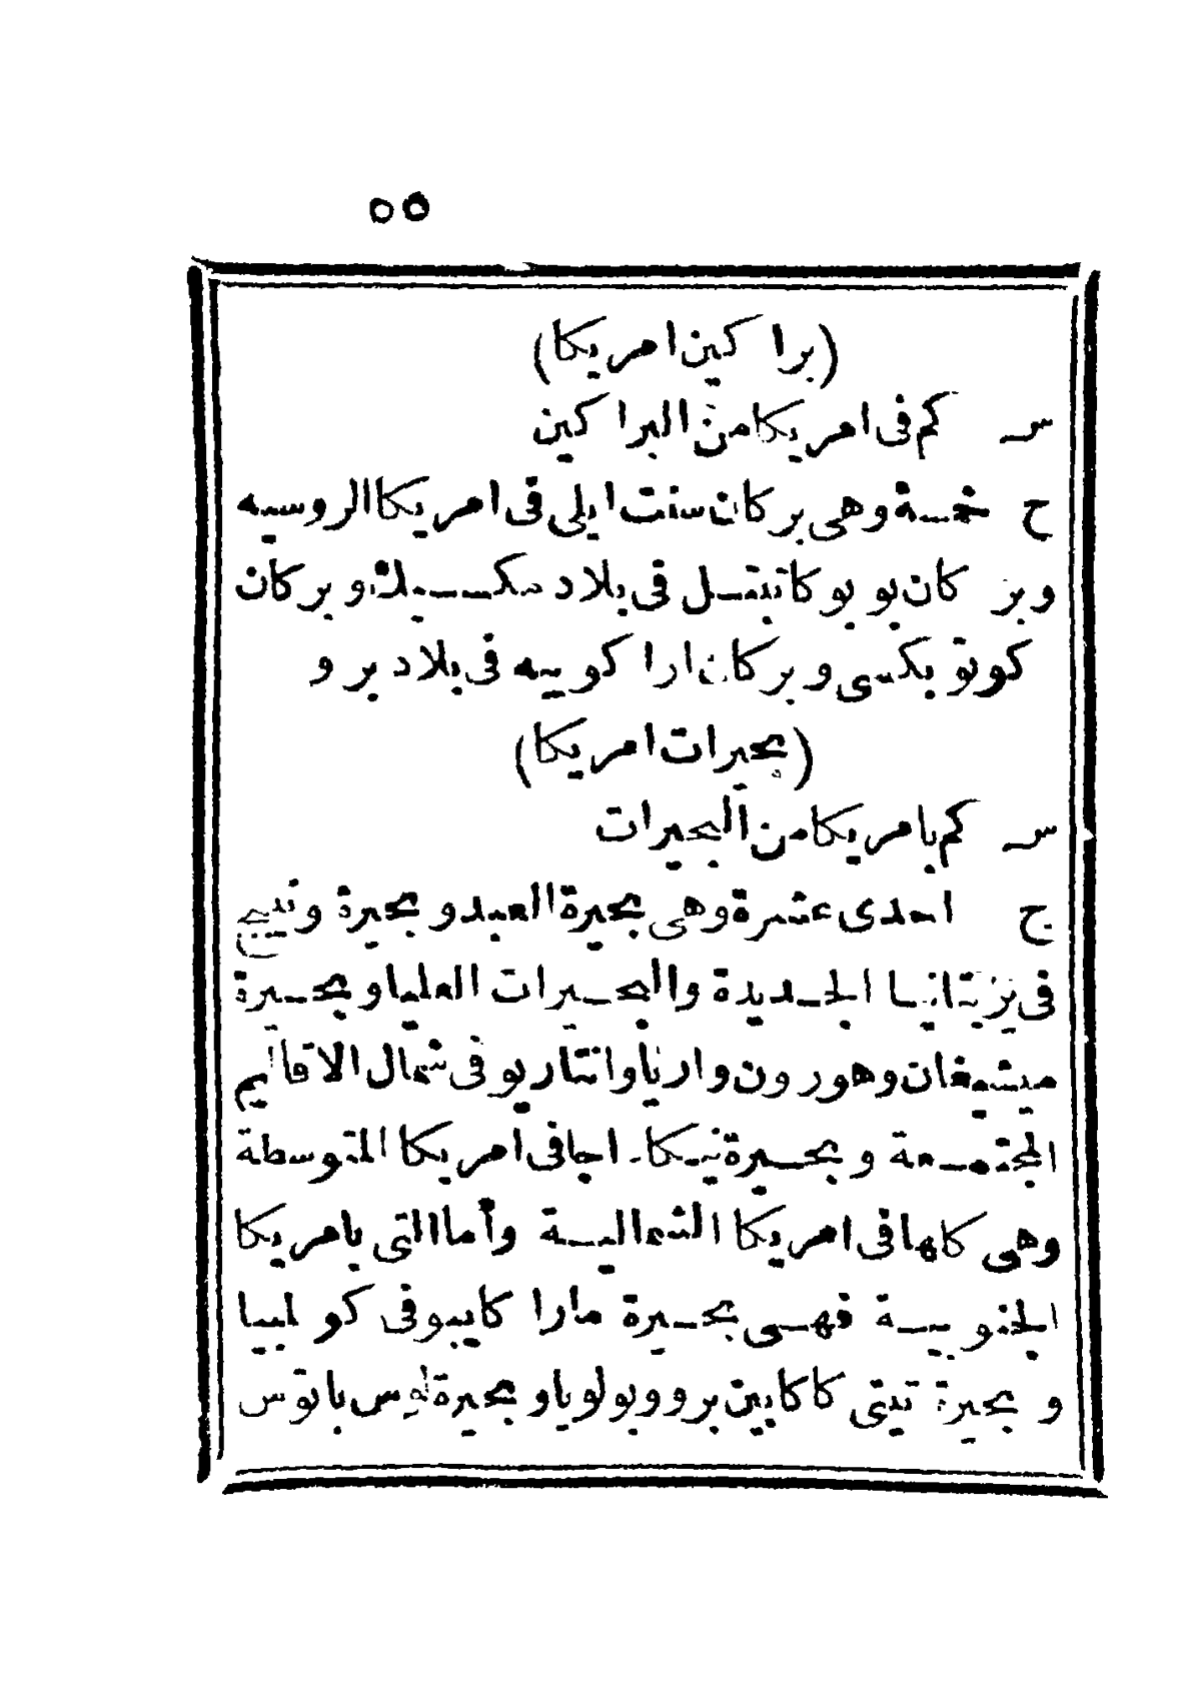 ٥٥
(براكين امريكا)
س كم فى امريكا من البراكين
ج خمسة وهى بركان سنت ايلى فى امريكا الروسيه
وبركان بوبوكاتبتسل فى بلاد مكسيك وبركان
كوتوبكسى وبركان اراكوييه فى بلاد برو
(بحيرات امريكا)
س كم بامريكا من البحيرات
ج احدى عشرة وهى بحيرة العبيد وبحيرة ونيبج
فى بريتانيا الجديدة والبحيرات العليا وبحيرة
ميشيغان وهورون واريا وانتاريو فى شمال الاقاليم
المجتمعة وبحيرة نيكاراجا فى امريكا المتوسطة
وهى كلها فى امريكا الشمالية وأما التى بامريكا
الجنوبية فهى بحيرة مارا كايبو فى كولمبيا
وبحيرة تيتى كاكا بين برو وبولويا وبحيرة لوس باتوس